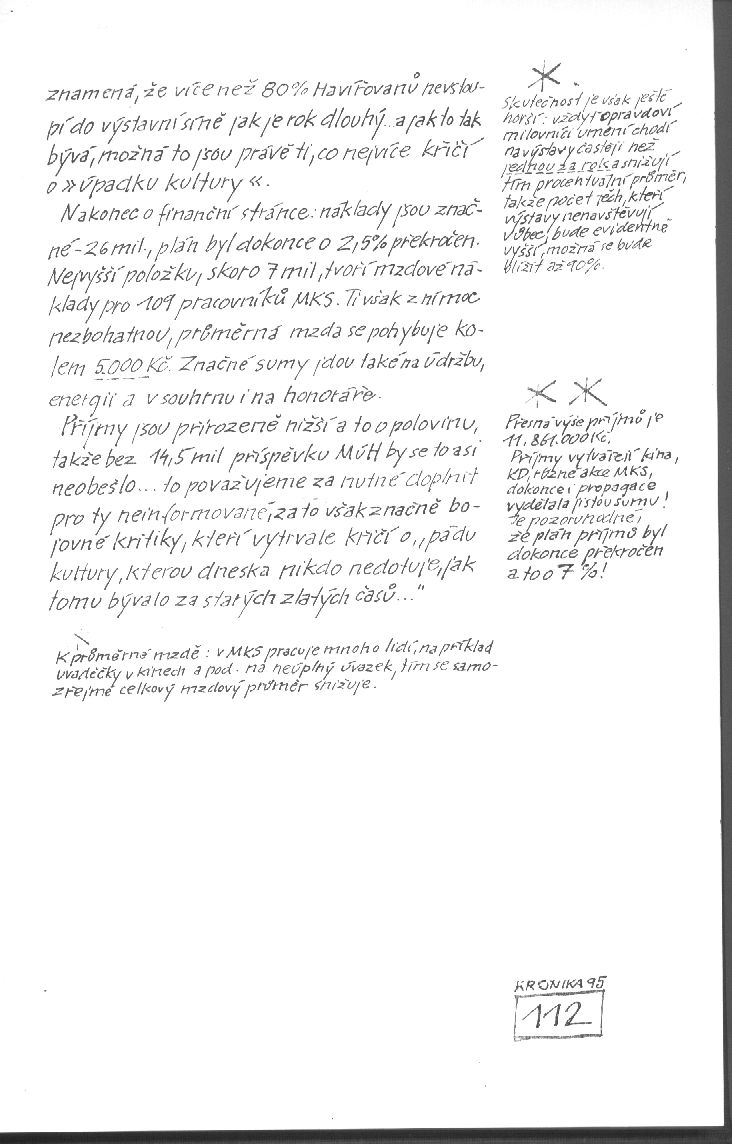 znamená, že více než 80% Havířovanů nevstou-
pí do výstavní síně jak je rok dlouhý...a jak to tak
bývá, možná to jsou právě ti, co nejvíce křičí
o »úpadku kultury«.
Nakonec o finanční stránce: náklady jsou znač-
né - 26 mil., plán byl dokonce o 2,5% překročen.
Nejvyšší položku, skoro 7 mil, tvoří mzdové ná-
klady pro 109 pracovníků MKS. Ti však z ní moc
nezbohatnou, průměrná mzda se pohybuje ko-
lem 5.000 Kč. Značné sumy jdou také na údržbu,
energii a v souhrnu i na honoráře.
Příjmy jsou přirozeně nižší a to o polovinu,
takže bez 14,5 mil příspěvku MúH by se to asi
neobešlo... to považujeme za nutné doplnit
pro ty neinformované, za to však značně bo-
jovné kritiky, kteří vytrvale křičí o „pádu
kultury, kterou dneska nikdo nedotuje, jak
tomu bývalo za starých zlatých časů..."
K průměrné mzdě: v MKS pracuje mnoho lidí, na příklad
uváděčky v kinech a pod. na neúplný úvazek, tím se samo-
zřejmě celkový mzdový průměr snižuje.
*
Skutečnost je však ještě
horší: vždyť opravdoví
milovníci umění chodí
na výstavy častěji než
jednou za rok a snižují
tím procentuální průměr,
takže počet těch, kteří
výstavy nenavštěvují
vůbec, bude evidentně
vyšší, možná se bude
blížit až 90%.
* *
Přesná výše příjmů je
11.861.000 Kč.
Příjmy vytvářejí kina,
KD, různé akce MKS,
dokonce i propagace
vydělala jistou sumu!
Je pozoruhodné,
že plán příjmů byl
dokonce překročen
a to o 7%!
KRONIKA 95
112